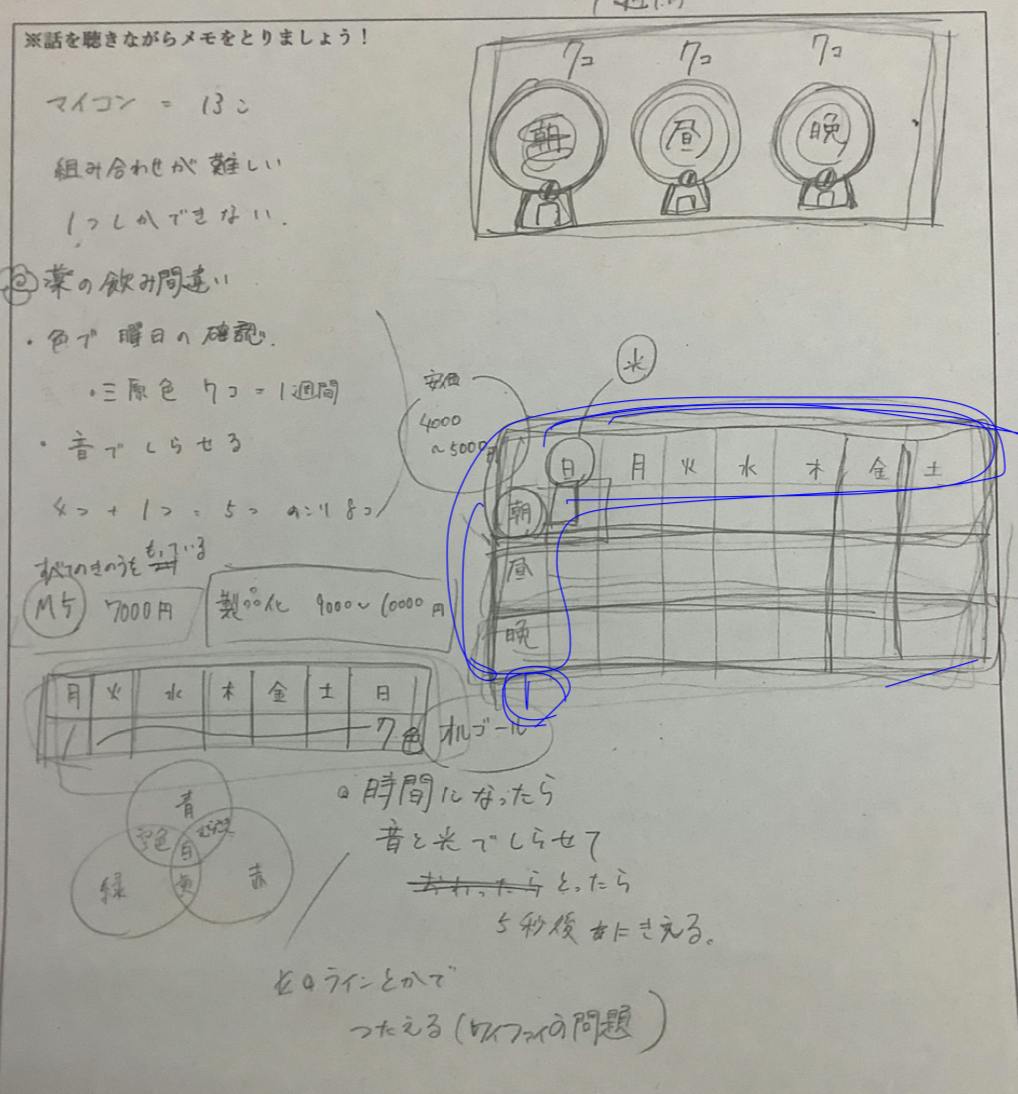 ※話を聴きながらメモをとりましょう！
マイコン = 13こ
組み合わせが難しい
1つしかできない.
薬の飲み間違い
・色で曜日の確認.
・三原色 7コ = 1週間
・音でしらせる
4つ + 1つ = 5つ のこり8コ
すべてのきのうをもっている
M5 7000円
製品化 9000〜10000円
7コ 7コ 7コ
朝 昼 晩
安価
4000
〜5000円
光
日 月 火 水 木 金 土
朝
昼
晩
1
月 火 水 木 金 土 日
1 7色
オルゴール
青
空色 むらさき
白
緑 黄 赤
時間になったら
音と光でしらせて
とったら
5秒後にきえる。
ラインとかで
つたえる(ワイファイの問題)